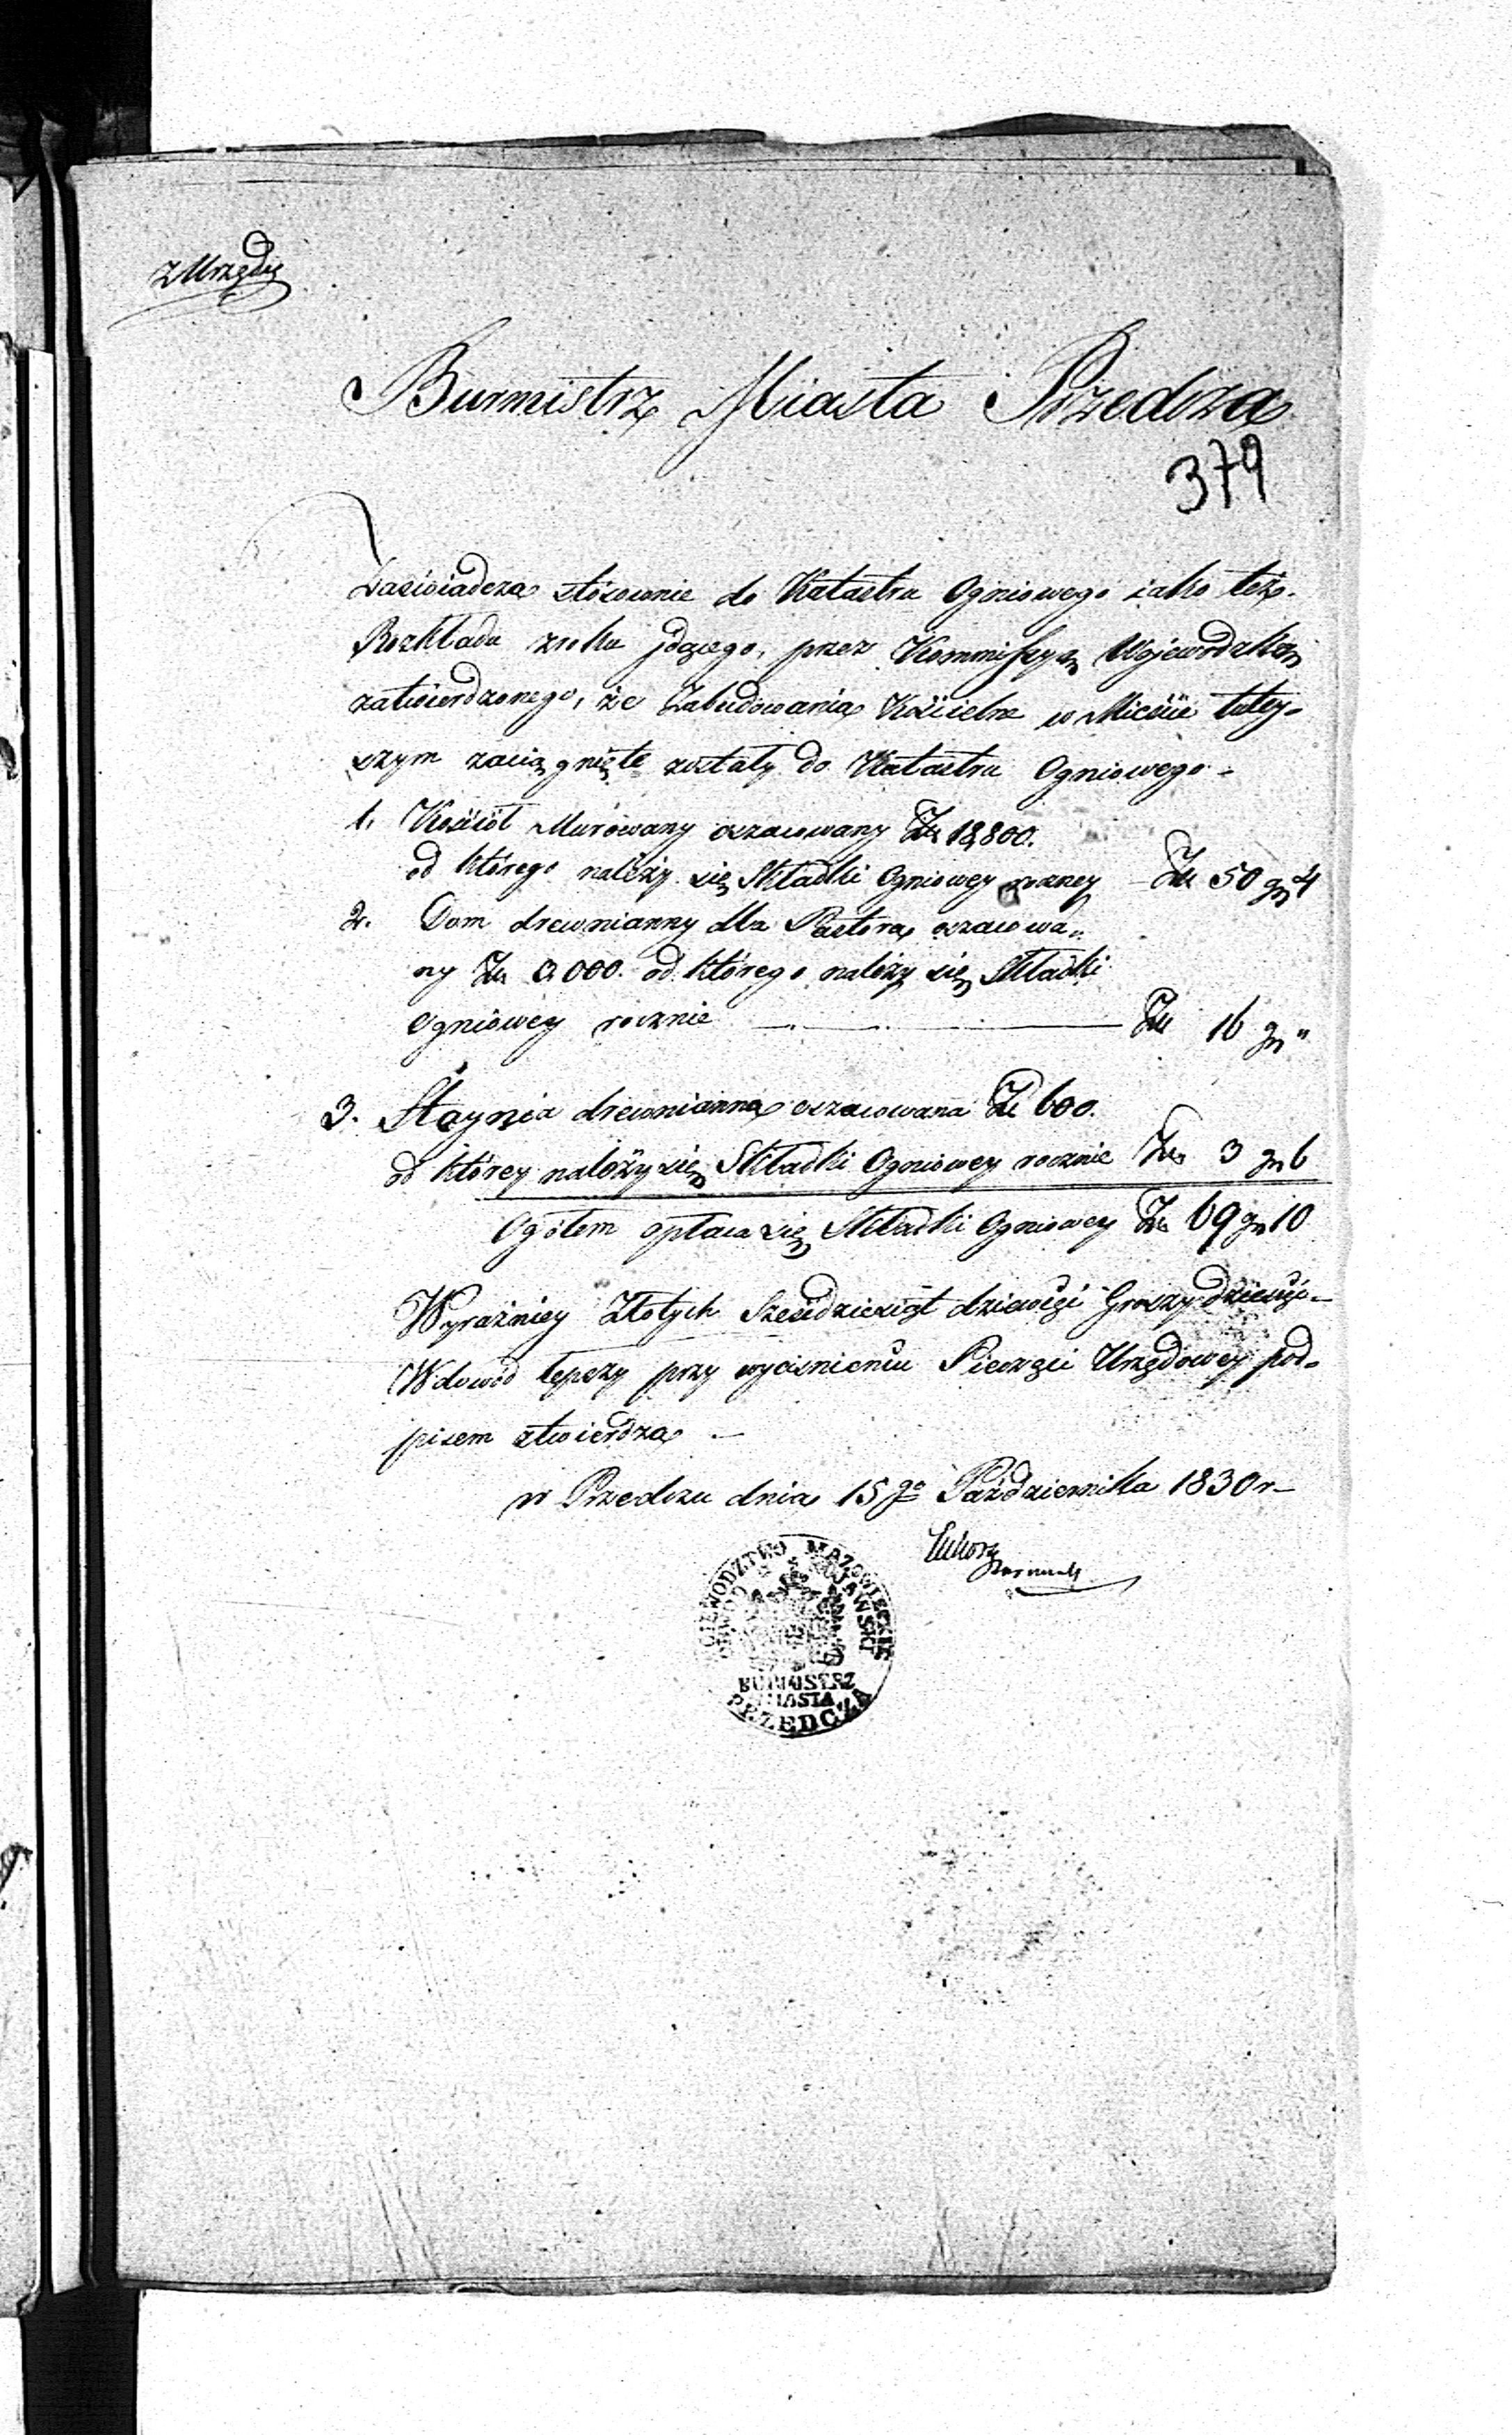 z Urzędu
Burmistrz Miasta Przedcza
379
Zaświadcza stósownie do Katastru Ogniowego iako też
Rozkładu zroku idącego, przez Kommissyą Wojewodzką
zatwierdzonego, że Zabudowania Kościelne w Mieście tutey-
szym zaciągnięte zostały do Katastru Ogniowego -
1. Kościół Murowany oszacowany Zł 18,800.
od którego należy się Składki Ogniowey roczney - Zł 50 gr 4
2. Dom drewnianny dla Pastora oszacowa-
ny Zł 6.000. od którego należy się Składki
Ogniowey rocznie — Zł 16 gr "
3. Staynia drewnianna oszacowana Zł 600.
od którey należy się Składki Ogniowey rocznie Zł 3 gr 6
Ogółem opłaca się Składki Ogniowey Zł 69 gr 10
Wyraźniey Złotych Sześćdziesiąt dziewięć Groszy dziesięć -
W dowód tępszy przy wyciśnieniu Pieczęci Urzędowey pod-
pisem stwierdza -
w Przedczu dnia 15go Października 1830 r -
WOIEWODZTWO MAZOWIECKIE
OBWOD KUJAWSKI
BURMISTRZ
MIASTA
PRZEDCZA